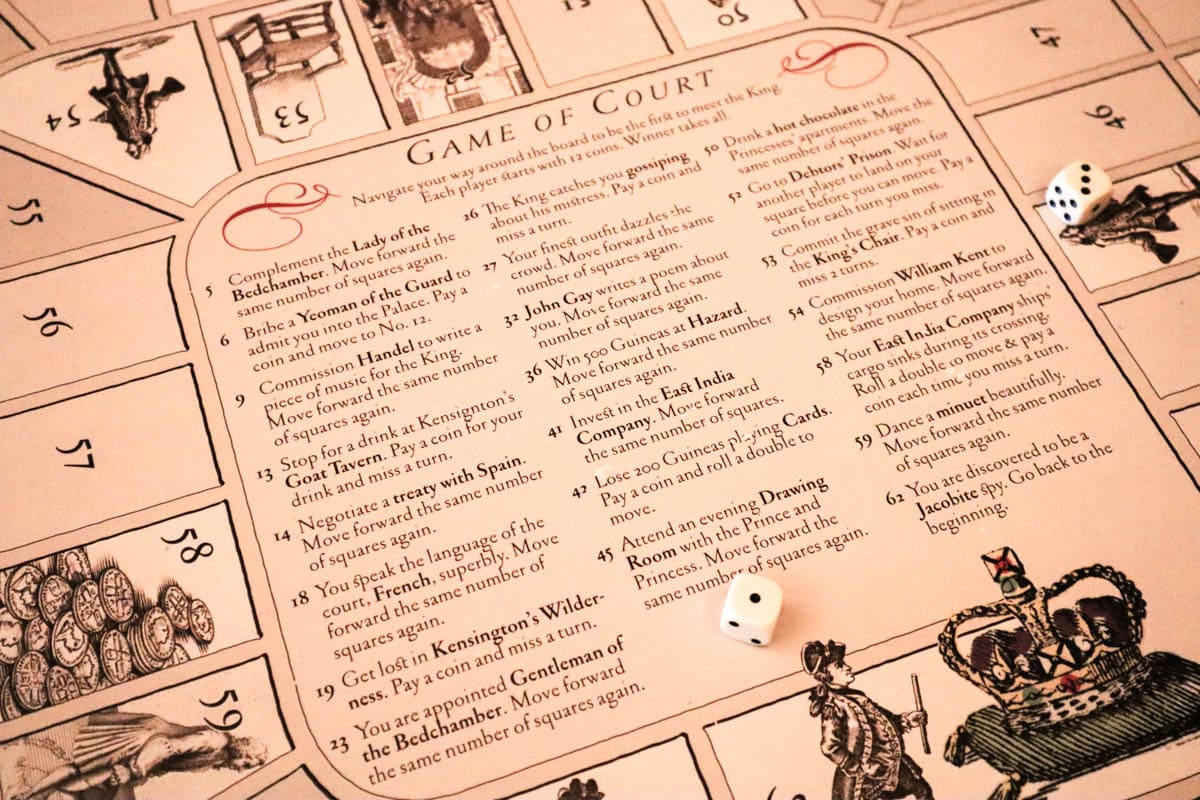 50
52
53
54
47
46
55
56
57
58
59
GAME OF COURT
Navigate your way around the board to be the first to meet the King.
Each player starts with 12 coins. Winner takes all.
5 Complement the Lady of the
Bedchamber. Move forward the
same number of squares again.
6 Bribe a Yeoman of the Guard to
admit you into the Palace. Pay a
coin and move to No. 12.
9 Commission Handel to write a
piece of music for the King.
Move forward the same number
of squares again.
13 Stop for a drink at Kensignton's
Goat Tavern. Pay a coin for your
drink and miss a turn.
14 Negotiate a treaty with Spain.
Move forward the same number
of squares again.
18 You speak the language of the
court, French, superbly. Move
forward the same number of
squares again.
19 Get lost in Kensington's Wilder-
ness. Pay a coin and miss a turn.
23 You are appointed Gentleman of
the Bedchamber. Move forward
the same number of squares again.
26 The King catches you gossiping
about his mistress. Pay a coin and
miss a turn.
27 Your finest outfit dazzles the
crowd. Move forward the same
number of squares again.
32 John Gay writes a poem about
you. Move forward the same
number of squares again.
36 Win 500 Guineas at Hazard.
Move forward the same number
of squares again.
41 Invest in the East India
Company. Move forward
the same number of squares.
42 Lose 200 Guineas playing Cards.
Pay a coin and roll a double to
move.
45 Attend an evening Drawing
Room with the Prince and
Princess. Move forward the
same number of squares again.
50 Drink a hot chocolate in the
Princesses' apartments. Move the
same number of squares again.
52 Go to Debtors' Prison. Wait for
another player to land on your
square before you can move. Pay a
coin for each turn you miss.
53 Commit the grave sin of sitting in
the King's Chair. Pay a coin and
miss 2 turns.
54 Commission William Kent to
design your home. Move forward
the same number of squares again.
58 Your East India Company ships'
cargo sinks during its crossing.
Roll a double to move & pay a
coin each time you miss a turn.
59 Dance a minuet beautifully.
Move forward the same number
of squares again.
62 You are discovered to be a
Jacobite spy. Go back to the
beginning.